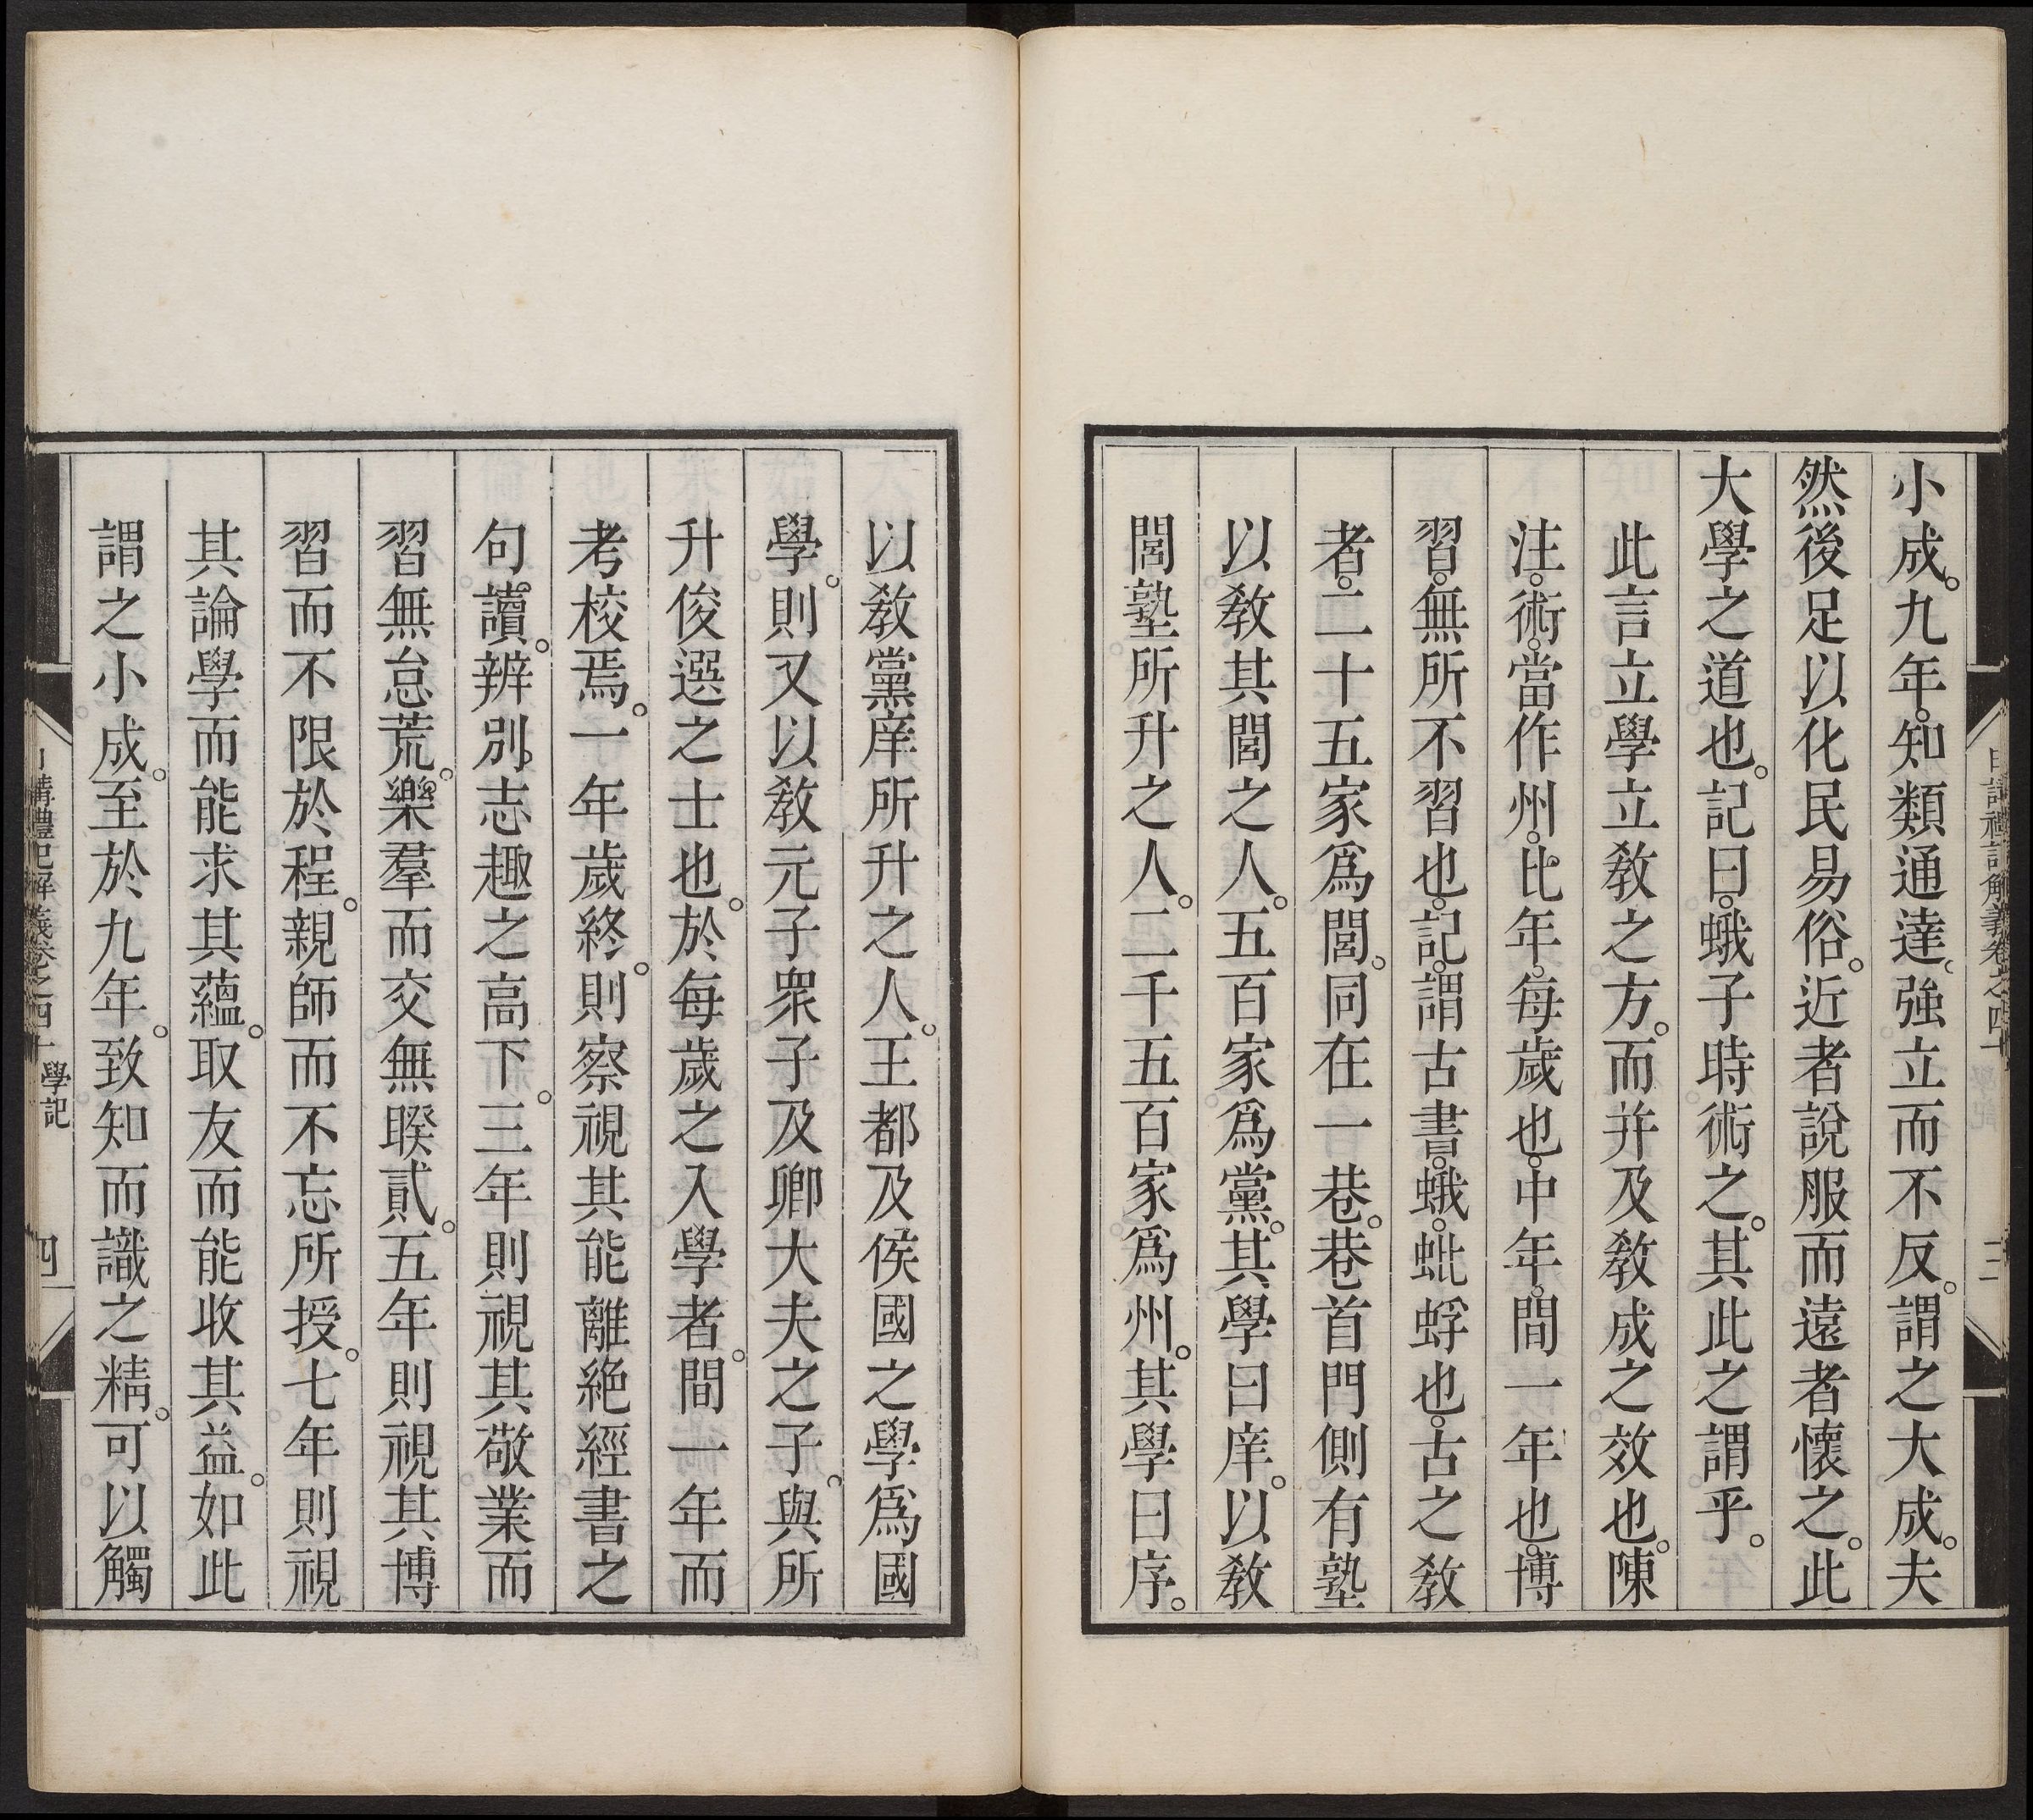 小成。九年。知類通達。強立而不反。謂之大成。夫
然後足以化民易俗。近者說服而遠者懷之。此
大學之道也。記曰。蛾子時術之。其此之謂乎。
此言立學立敎之方。而并及敎成之效也。陳
注。術。當作州。比年。每歲也。中年。間一年也。博
習。無所不習也。記。謂古書。蛾。蚍蜉也。古之敎
者。二十五家爲閭。同在一巷。巷首門側有塾
以敎其閭之人。五百家爲黨。其學曰庠。以敎
閭塾所升之人。二千五百家爲州。其學曰序。
以敎黨庠所升之人。王都及侯國之學爲國
學。則又以敎元子衆子及卿大夫之子。與所
升俊選之士也。於每歲之入學者。間一年而
考校焉。一年歲終。則察視其能離絶經書之
句讀。辨別志趣之高下。三年則視其敬業而
習無怠荒。樂羣而交無睽貳。五年則視其博
習而不限於程。親師而不忘所授。七年則視
其論學而能求其蘊。取友而能收其益。如此
謂之小成。至於九年。致知而識之精。可以觸
講禮記解義卷之四十 學記 四